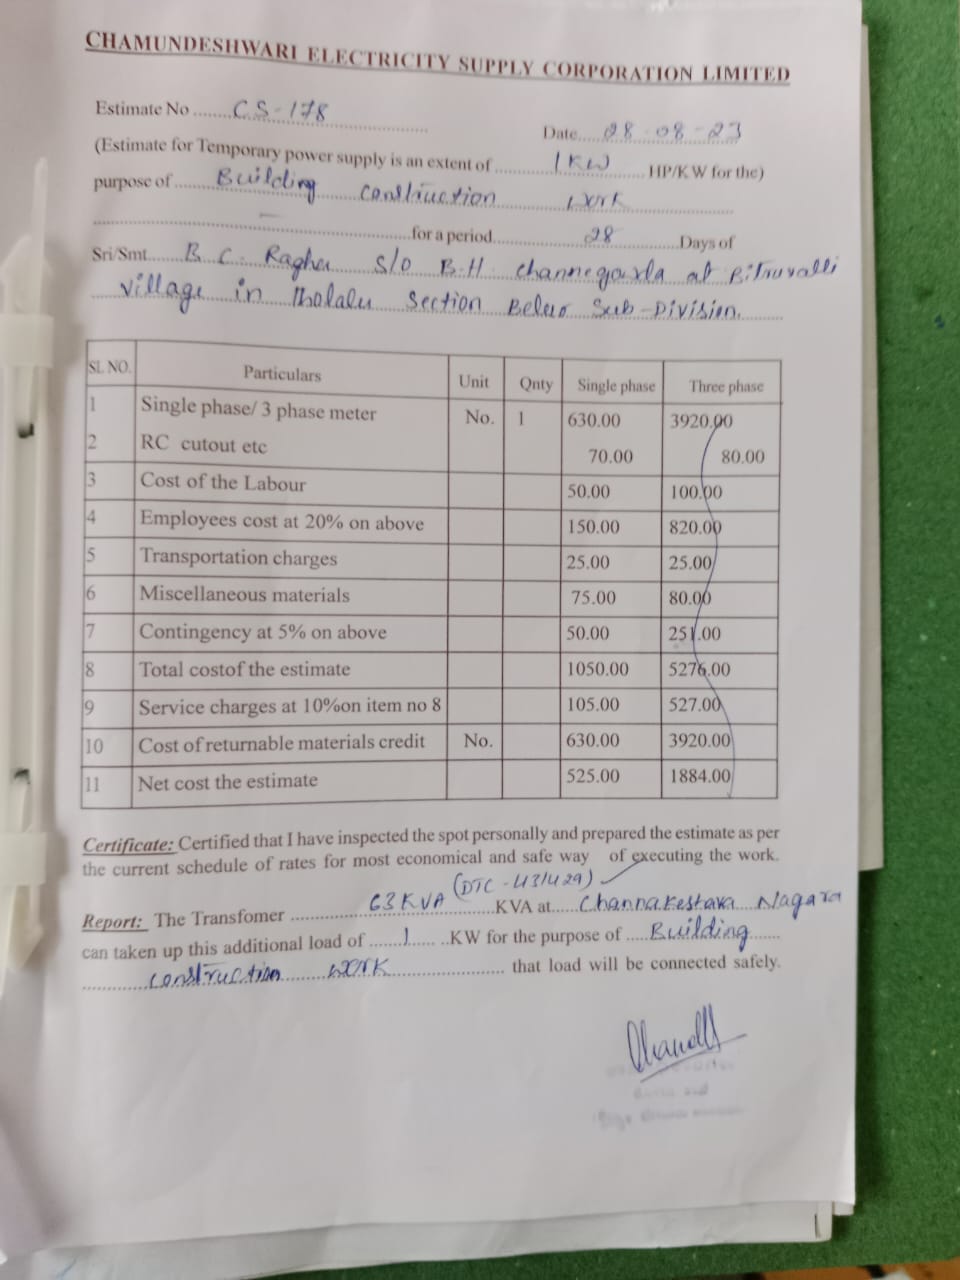 CHAMUNDESHWARI ELECTRICITY SUPPLY CORPORATION LIMITED
Estimate No ........CS-178........
Date.....28-08-23
(Estimate for Temporary power supply is an extent of ........1KW........ HP/KW for the)
purpose of ........Building construction work........
........for a period........28........Days of
Sri/Smt.....B.C. Raghu S/o B.H. channegowda at Bitruvalli
village in Tholalu Section Belur Sub-Division.
SL NO. Particulars Unit Qnty Single phase Three phase
1 Single phase/ 3 phase meter No. 1 630.00 3920.00
2 RC cutout etc 70.00 80.00
3 Cost of the Labour 50.00 100.00
4 Employees cost at 20% on above 150.00 820.00
5 Transportation charges 25.00 25.00
6 Miscellaneous materials 75.00 80.00
7 Contingency at 5% on above 50.00 251.00
8 Total costof the estimate 1050.00 5276.00
9 Service charges at 10%on item no 8 105.00 527.00
10 Cost of returnable materials credit No. 630.00 3920.00
11 Net cost the estimate 525.00 1884.00
Certificate: Certified that I have inspected the spot personally and prepared the estimate as per
the current schedule of rates for most economical and safe way of executing the work.
(DTC - 431429)
Report: The Transfomer ........63KVA........KVA at.....Channakeshava Nagara
can taken up this additional load of ......1...... ..KW for the purpose of .....Building......
........construction work........ that load will be connected safely.